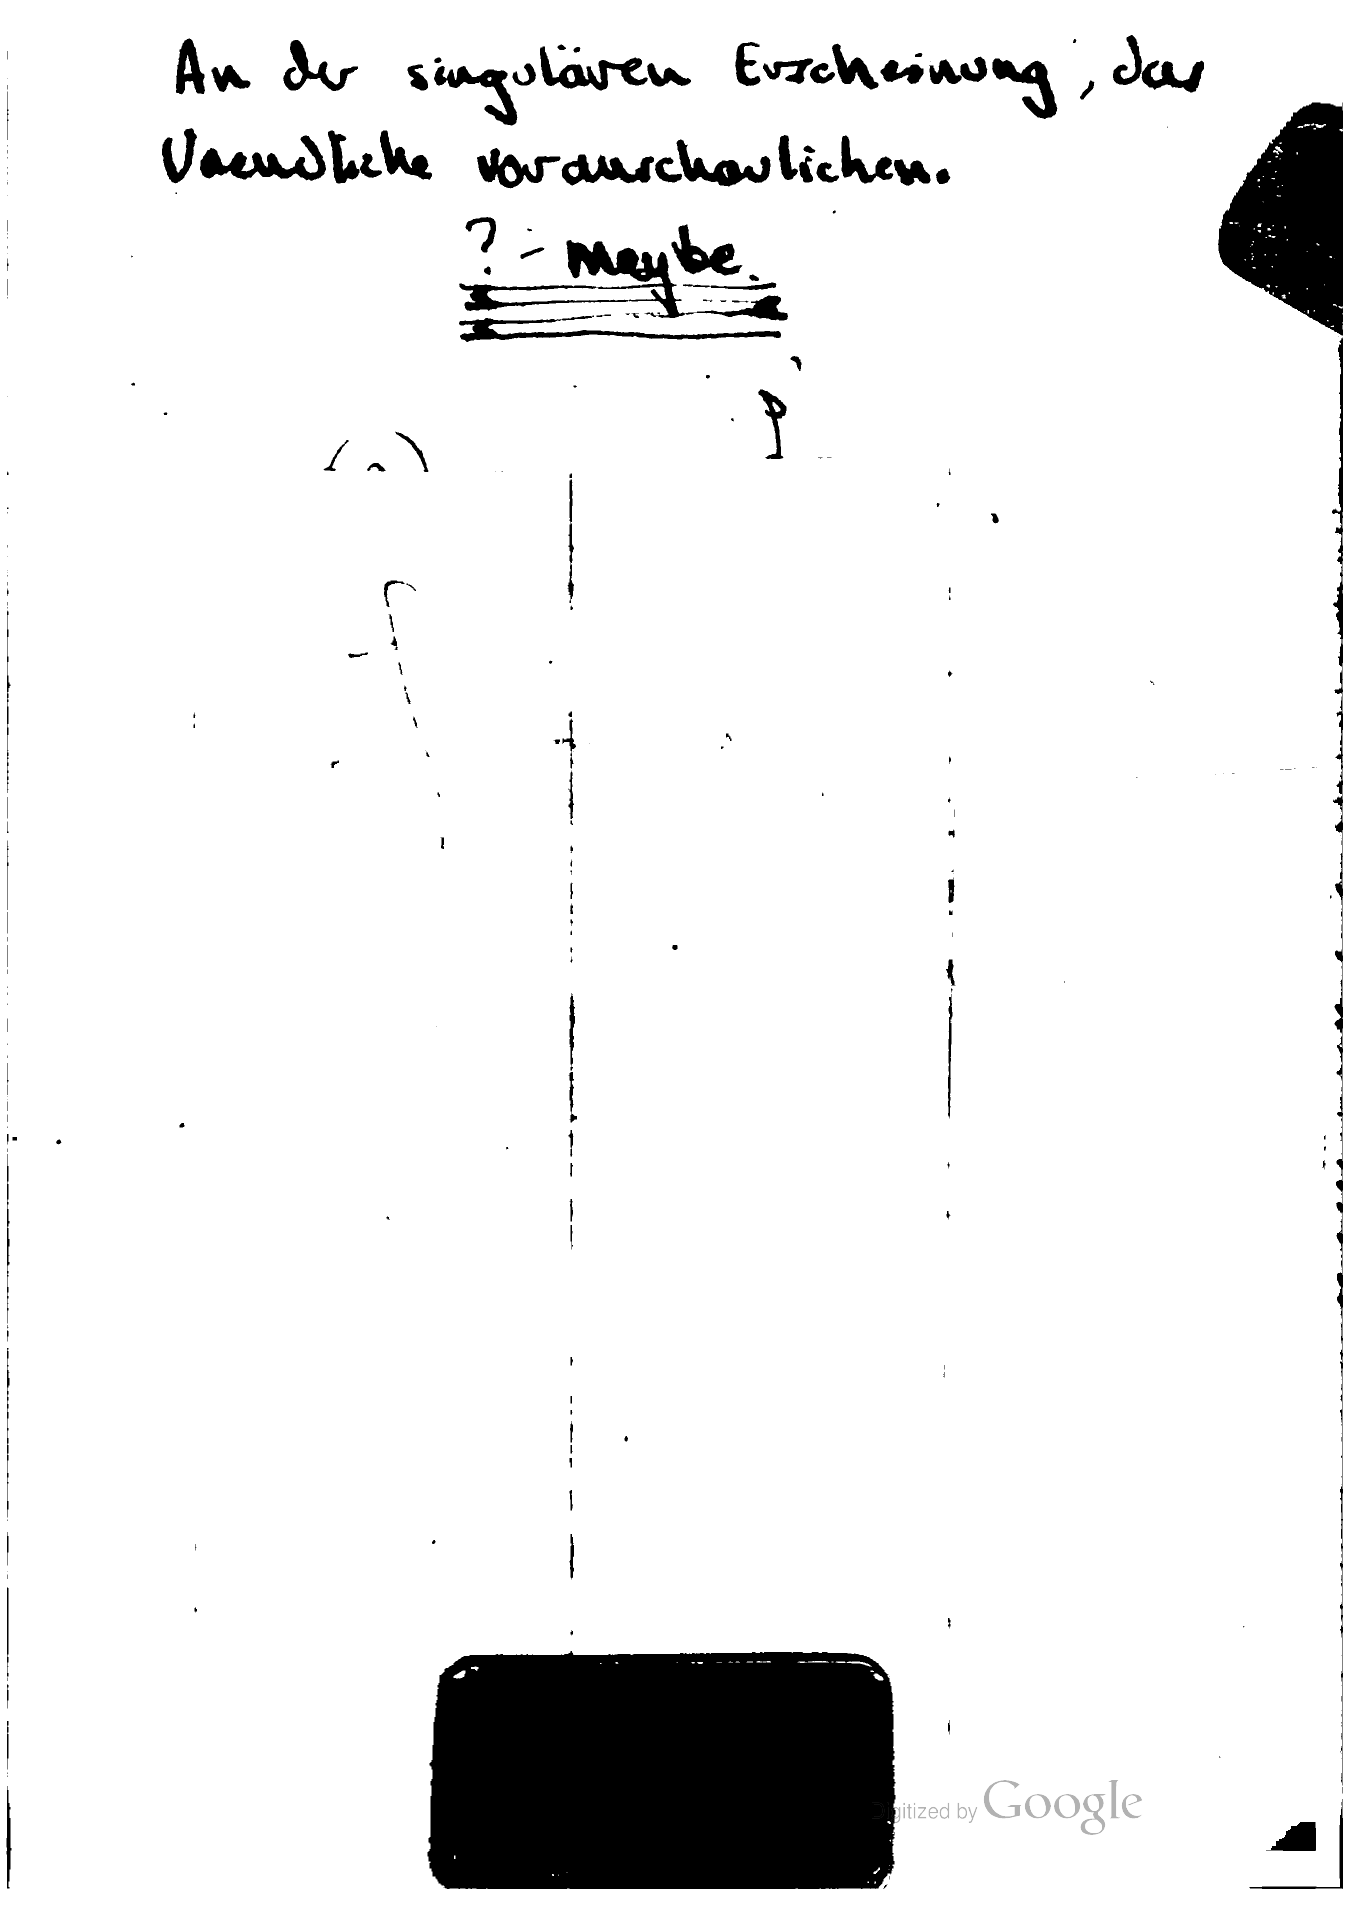 An der singulären Erscheinung, das
Unendliche veranschaulichen.
? - Maybe.
Digitized by Google